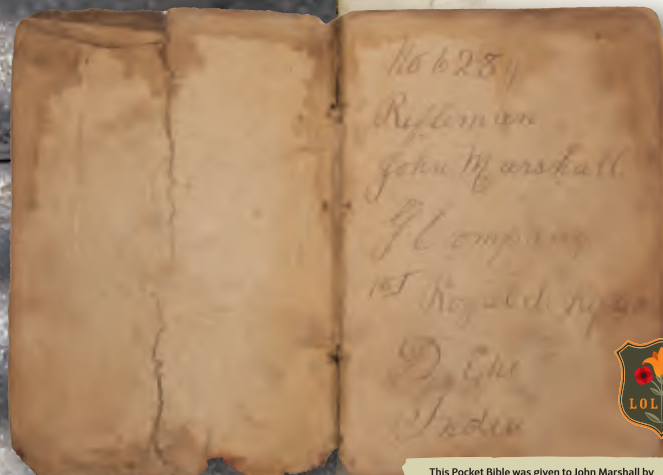 No 6284
Rifleman
John Marshall
G Company
1st Royal
India
LOL
This Pocket Bible was given to John Marshall by